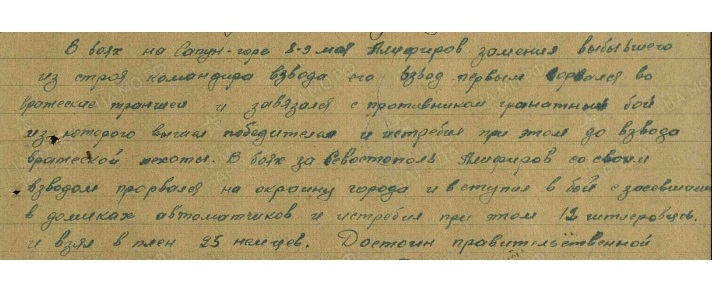 В боях на Сапун-горе 8-9 мая Алифиров заменил выбывшего
из строя командира взвода его взвод первым ворвался во
вражеские траншеи и завязался с противником гранатный бой
из которого вышел победителем и истребил при этом до взвода
вражеской пехоты. В боях за Севастополь Алифиров со своим
взводом прорвался на окраину города и вступил в бой с засевшими
в домиках автоматчиков и истребил при этом 12 гитлеровцев.
и взял в плен 25 немцев. Достоин правительственной